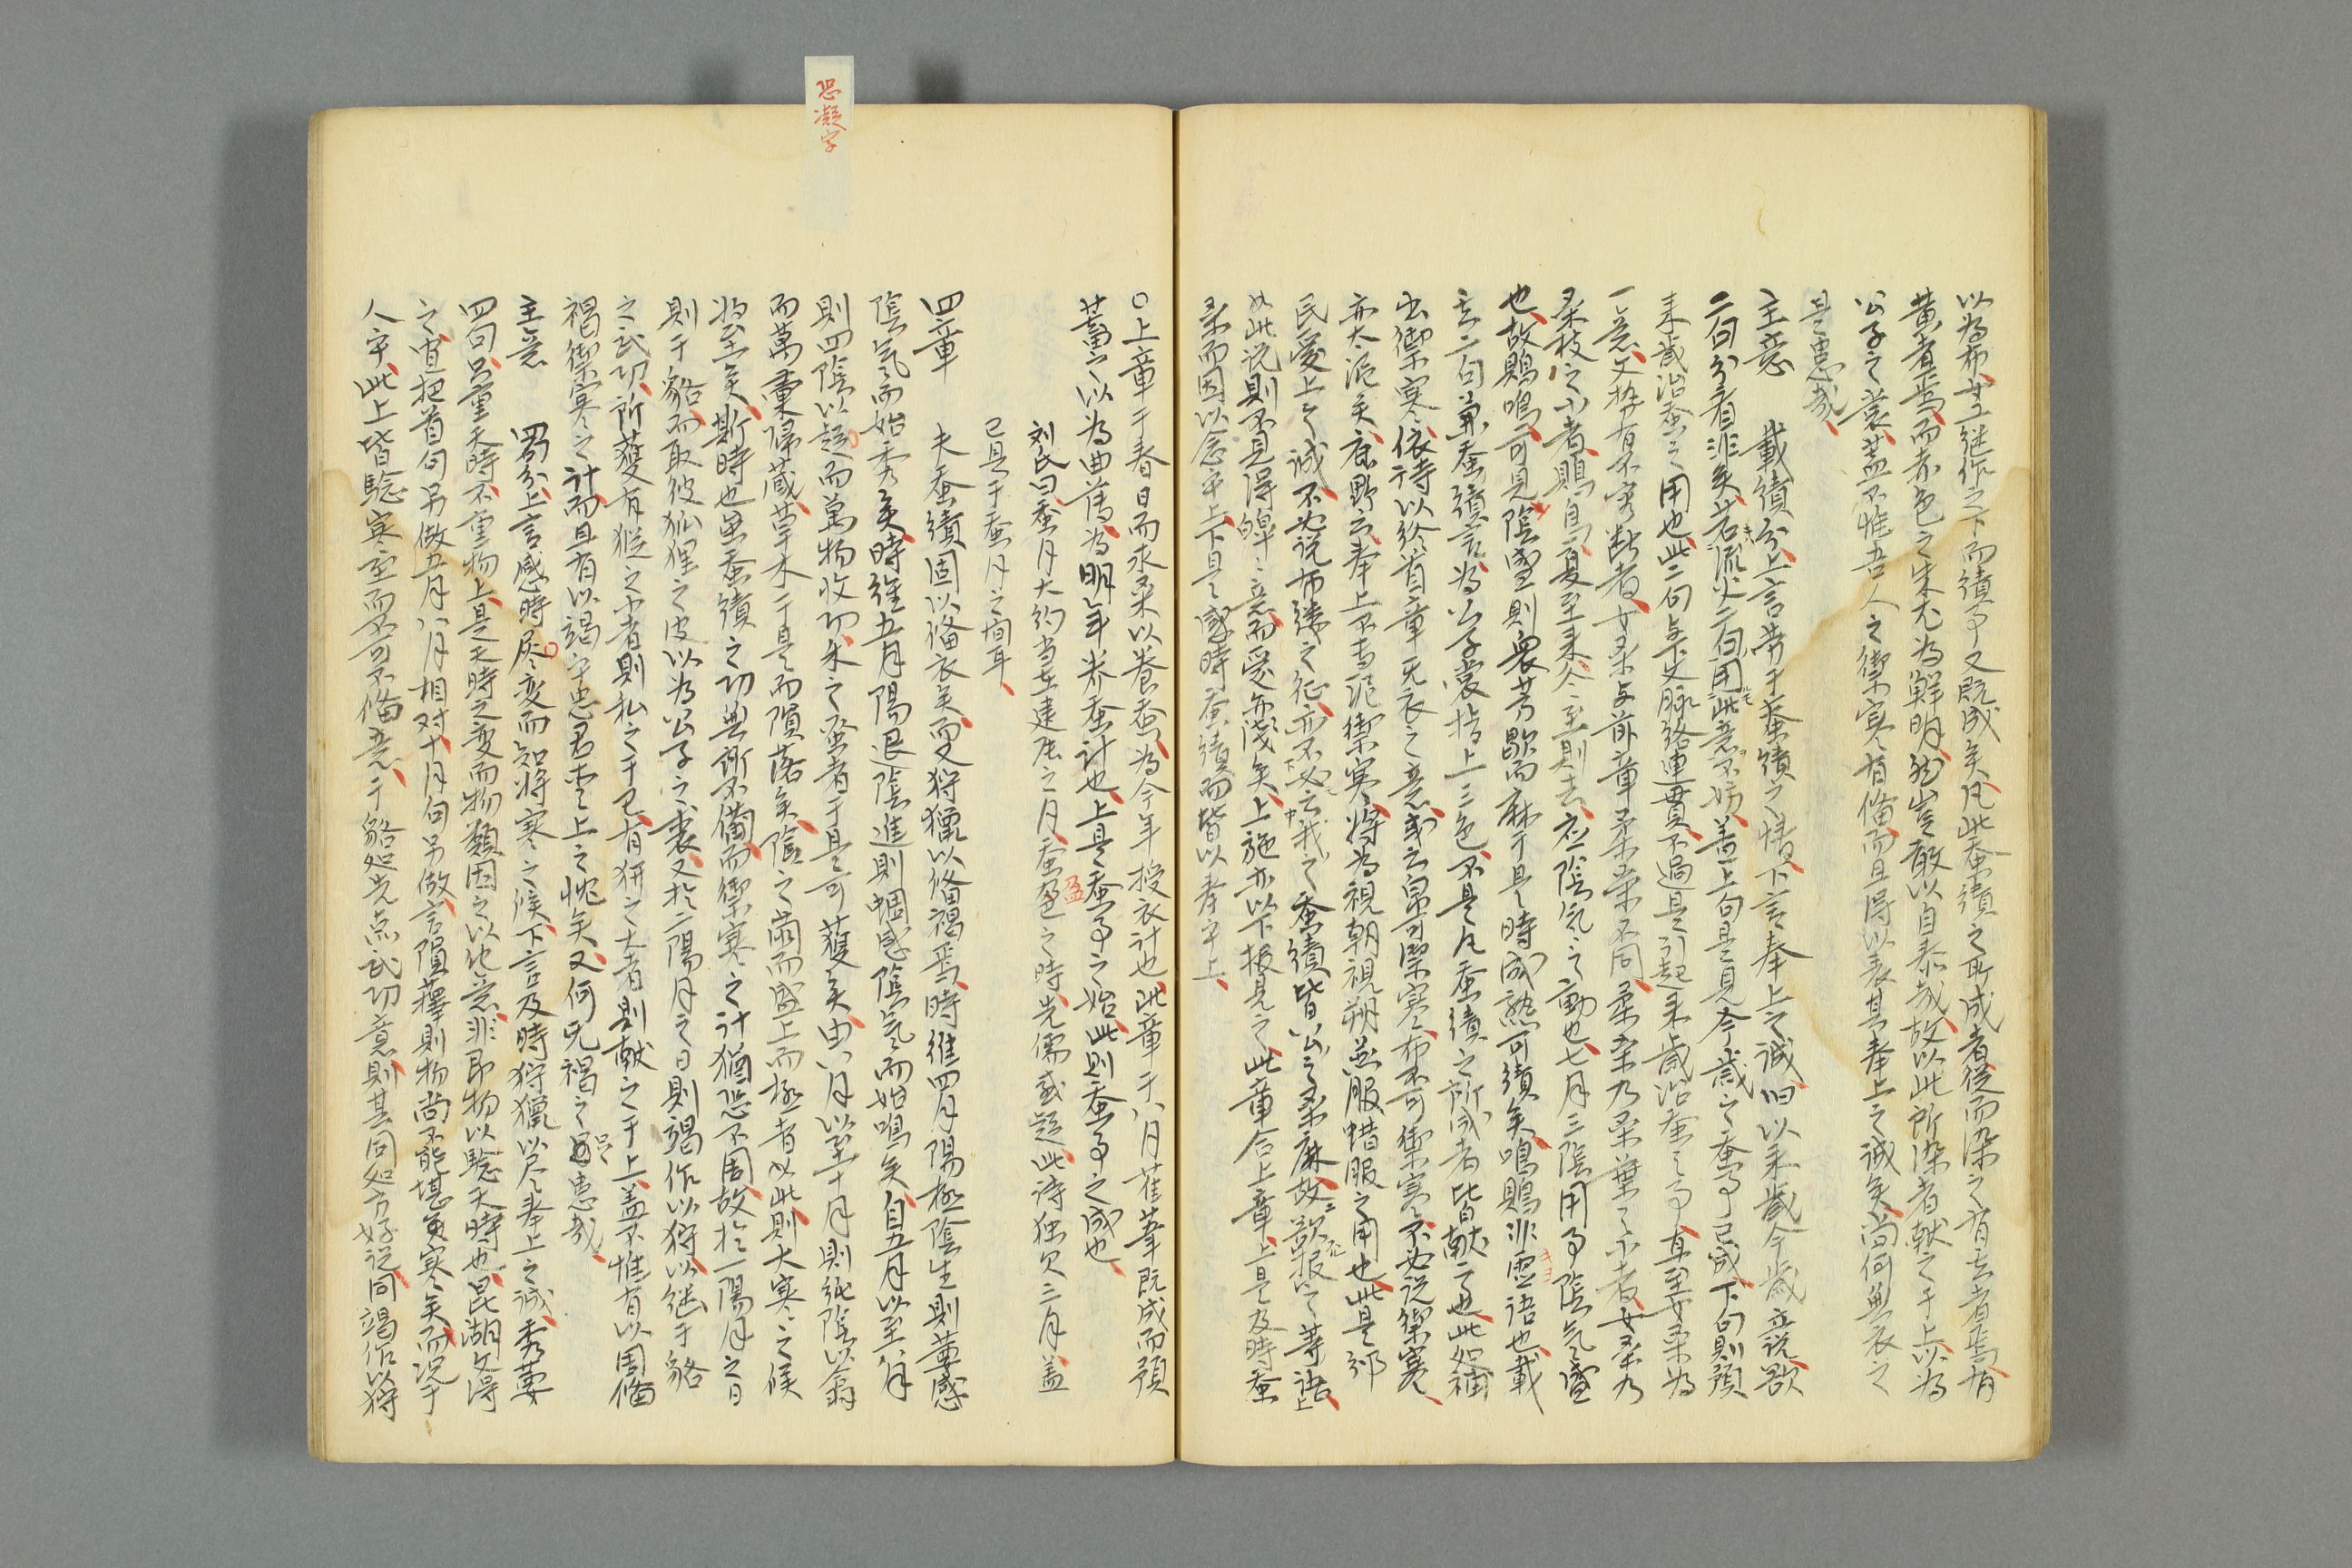 以為布女工継作之下而績事又既成矣凡此蚕績之所成者従而染之有玄者焉有
黄者焉而赤色之朱尤為鮮明然豈敢以自恭哉故以此所染者献之于上以為
公子之裳蓋不惟吾人之禦寒有俻而且得以表其奉上之誠矣尚何無衣之
是患哉
主意　載績分上言労于蚕績之情下言奉上之誠旧以来歳今歳立説歌
二句分者非矣若流火二句用此意不妨蓋上句是見今歳之蚕事已成下句則預
来歳治蚕之用也此二句与下文脉絡連貫不過是引起来歳治蚕之事直至女桑為
一意文勢有不容断者女桑与前章柔桑不同柔桑乃桑葉之小者女桑乃
桑枝之小者鵙鳥夏至来冬至則去応陰気之動也七月三陰用事陰気盛
也故鵙鳴可見陰盛則衆芳歇而麻于是時成熟可績矣鳴鵙非虚語也載
玄二句兼蚕績言為公子裳指上三色不是凡蚕績之所成者皆献之也此処補
出禦寒依詩以終首章无衣之意或云帛可禦寒布不可禦寒不必説禦寒
亦太泥矣鹿野云奉上不専泥禦寒将為視朝視朔燕服蜡服之用也此是邠
民愛上之誠不必説布縷之征亦不必云我之蚕績皆公之桑麻故欲報之等語
如此説則不見得皡々意而愛亦浅矣上施亦以下報見之此章合上章上是及時蚕
桑而因以念乎上下是感時蚕績而皆以奉乎上
○上章于春日而求桑以養蚕為今年授衣計也此章于八月萑葦既成而預
蓄之以為曲薄為明年养蚕計也上是蚕事之始此則蚕事之成也
刘氏曰蚕月大約当在建辰之月蚕盈之時先儒或疑此诗独欠三月蓋
已具于蚕月之間耳
四章　夫蚕績固以俻衣矣而又狩獵以俻褐焉時維四月陽極陰生則葽感
陰気而始秀矣時維五月陽退陰進則蜩感陰気而始鳴矣自五月以至八月
則四陰以疑而萬物收功禾之蚤者于是可獲矣由八月以至十月則純陰以翕
而萬彙帰蔵草木于是而隕落矣陰之崗而盛上而極者如此則大寒之候
将至矣斯時也虽蚕績之功無所不備而禦寒之计猶恐不周故於一陽月之日
則于貉而取彼狐狸之皮以為公子之裘又於二陽月之日則竭作以狩以継于貉
之武功所獲有豵之小者則私之于己有豜之大者則献之于上蓋不惟有以周俻
褐禦寒之计而且有以竭乎忠君愛上之忱矣又何无褐之是患哉
主意　四句分上言感時屡変而知将寒之候下言及時狩獵以尽奉上之诚秀葽
四句只重天時不重物上是天時之変而物類因之以化意非即物以驗天時也昆湖文得
之宜把首句另做五月八月相对十月句另做言隕蘀則物尚不能堪負寒矣而况于
人乎此上皆驗寒至而不可不俻意于貉処先点武功意則其同処方好説同竭作以狩
恐凝字